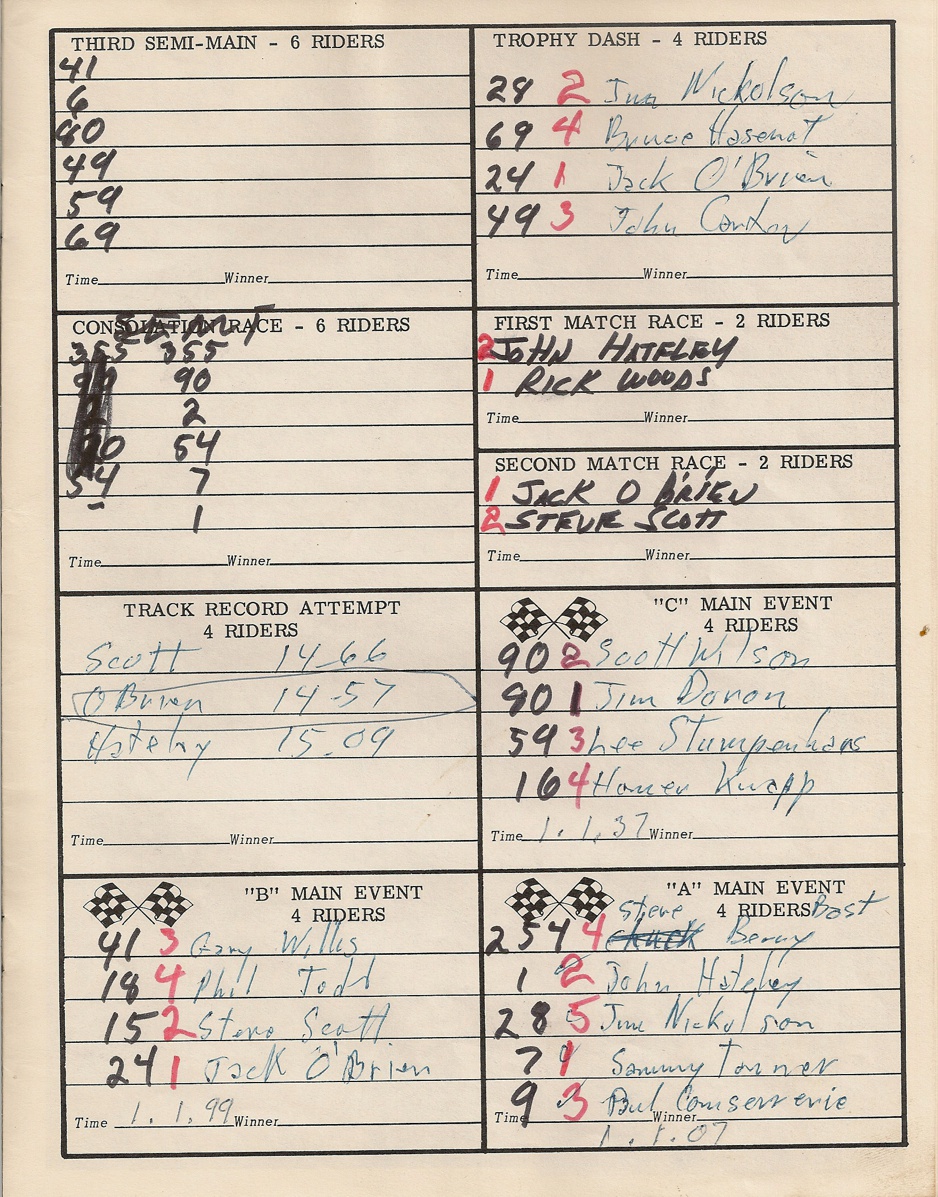 THIRD SEMI-MAIN - 6 RIDERS
41
6
80
49
59
69
Time Winner
TROPHY DASH - 4 RIDERS
28 2 Jim Nickolson
69 4 Bruce Hasenat
24 1 Jack O'Brien
49 3 John
Time Winner
CONSOLATION RACE - 6 RIDERS
SEMI
355 355
99 90
2 2
90 54
54 7
- 1
Time Winner
FIRST MATCH RACE - 2 RIDERS
2 JOHN HATELEY
1 RICK WOODS
Time Winner
SECOND MATCH RACE - 2 RIDERS
1 JACK O'BRIEN
2 STEVE SCOTT
Time Winner
TRACK RECORD ATTEMPT
4 RIDERS
Scott 14-66
O'Brien 14-57
Hately 15.09
Time Winner
"C" MAIN EVENT
4 RIDERS
90 2 Scott Wilson
80 1 Jim Doron
59 3 Lee Stumpenhaus
16 4 Homer Knapp
Time 1.1.37 Winner
"B" MAIN EVENT
4 RIDERS
41 3 Gary Willis
18 4 Phil Todd
15 2 Steve Scott
24 1 Jack O'Brien
Time 1.1.99 Winner
"A" MAIN EVENT
4 RIDERS
Steve Bast
254 4 Chuck Berry
1 2 John Hateley
28 5 Jim Nickolson
7 1 Sammy Tanner
9 3 Bul
Time Winner
1.1.07